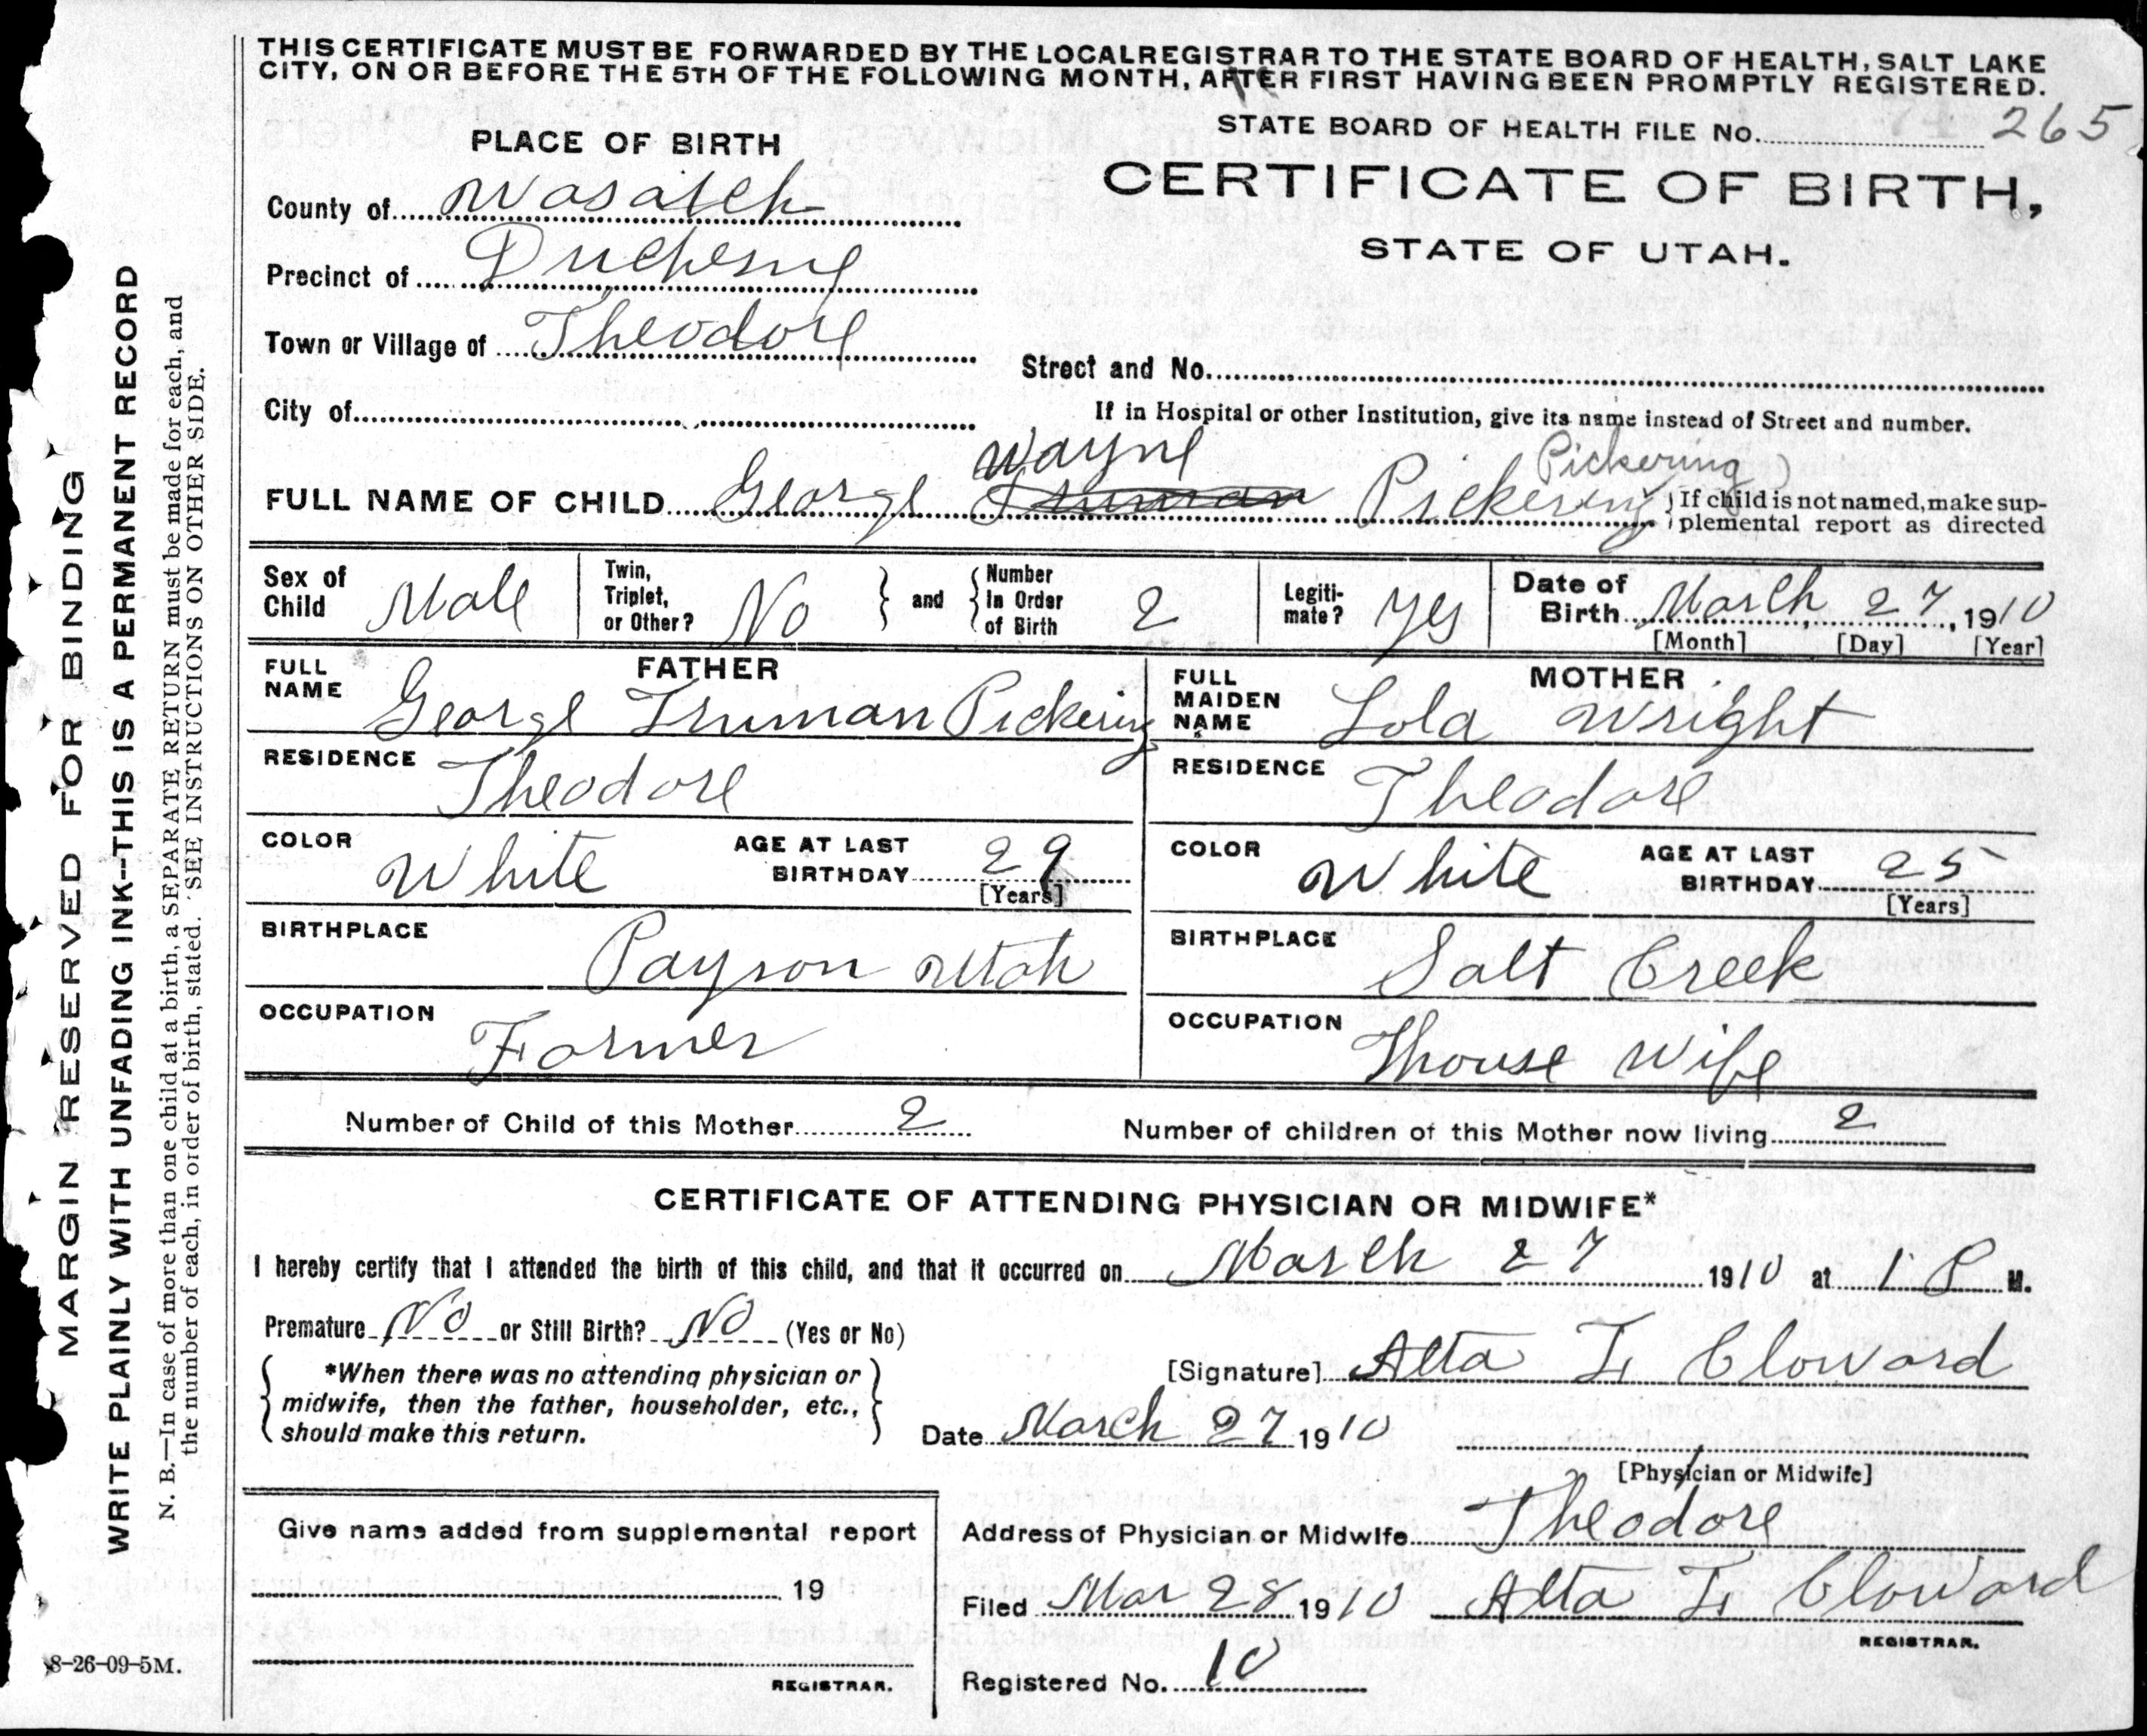 THIS CERTIFICATE MUST BE FORWARDED BY THE LOCAL REGISTRAR TO THE STATE BOARD OF HEALTH, SALT LAKE
CITY, ON OR BEFORE THE 5TH OF THE FOLLOWING MONTH, AFTER FIRST HAVING BEEN PROMPTLY REGISTERED.
STATE BOARD OF HEALTH FILE No. 265
PLACE OF BIRTH
CERTIFICATE OF BIRTH,
STATE OF UTAH.
County of Wasatch
Precinct of Duchesne
Town or Village of Theodore
Street and No.
City of
If in Hospital or other Institution, give its name instead of Street and number.
Wayne
Pickering
FULL NAME OF CHILD George Truman Pickering
If child is not named, make sup-
plemental report as directed
Sex of Child Male
Twin, Triplet, or Other? No
and Number In Order of Birth 2
Legiti-mate? Yes
Date of Birth March 27, 1910
[Month] [Day] [Year]
FATHER
FULL NAME George Truman Pickering
RESIDENCE Theodore
COLOR White AGE AT LAST BIRTHDAY 29
[Years]
BIRTHPLACE Payson Utah
OCCUPATION Farmer
MOTHER
FULL MAIDEN NAME Lola Wright
RESIDENCE Theodore
COLOR White AGE AT LAST BIRTHDAY 25
[Years]
BIRTHPLACE Salt Creek
OCCUPATION House Wife
Number of Child of this Mother 2 Number of children of this Mother now living 2
CERTIFICATE OF ATTENDING PHYSICIAN OR MIDWIFE*
I hereby certify that I attended the birth of this child, and that it occurred on March 27 1910 at 1 P M.
Premature No or Still Birth? No (Yes or No)
*When there was no attending physician or
midwife, then the father, householder, etc.,
should make this return.
[Signature] Alta L. Cloward
Date March 27 1910
[Physician or Midwife]
Address of Physician or Midwife Theodore
Filed Mar 28 1910 Alta L. Cloward
REGISTRAR.
Registered No. 10
Give name added from supplemental report
19
REGISTRAR.
8-26-09-5M.
MARGIN RESERVED FOR BINDING
WRITE PLAINLY WITH UNFADING INK--THIS IS A PERMANENT RECORD
N. B.—In case of more than one child at a birth, a SEPARATE RETURN must be made for each, and
the number of each, in order of birth, stated. SEE INSTRUCTIONS ON OTHER SIDE.